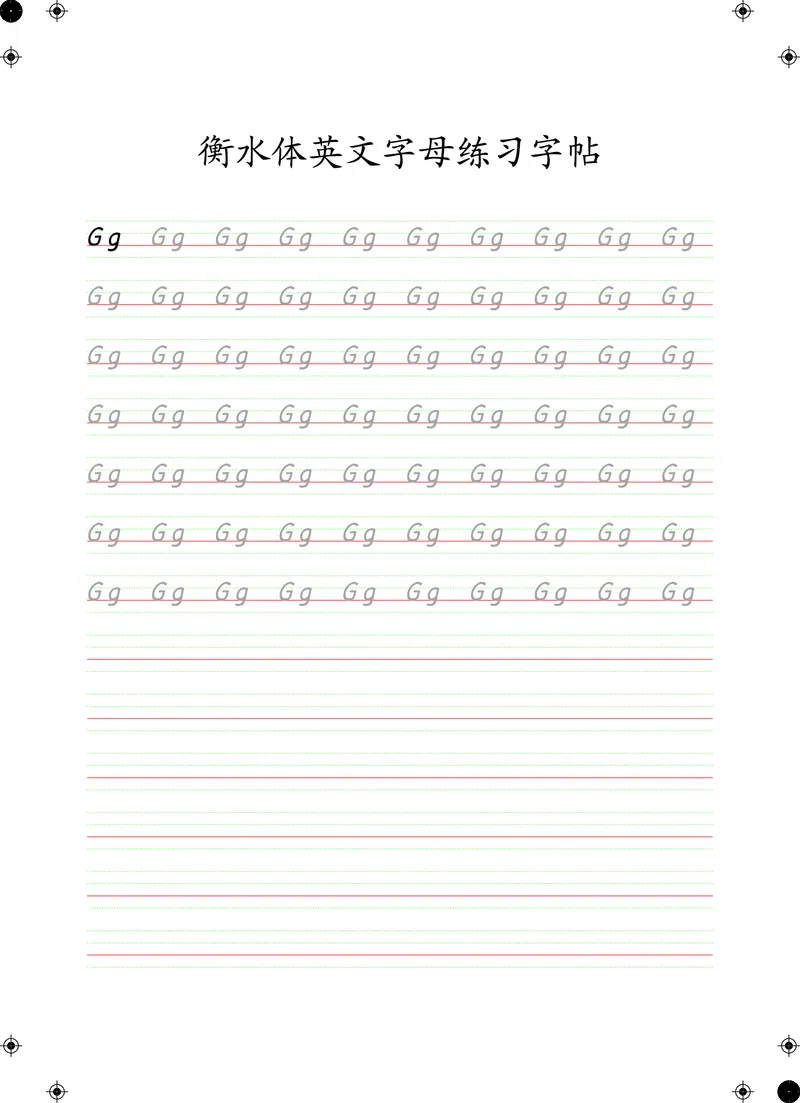 衡水体英文字母练习字帖
Gg Gg Gg Gg Gg Gg Gg Gg Gg Gg
Gg Gg Gg Gg Gg Gg Gg Gg Gg Gg
Gg Gg Gg Gg Gg Gg Gg Gg Gg Gg
Gg Gg Gg Gg Gg Gg Gg Gg Gg Gg
Gg Gg Gg Gg Gg Gg Gg Gg Gg Gg
Gg Gg Gg Gg Gg Gg Gg Gg Gg Gg
Gg Gg Gg Gg Gg Gg Gg Gg Gg Gg